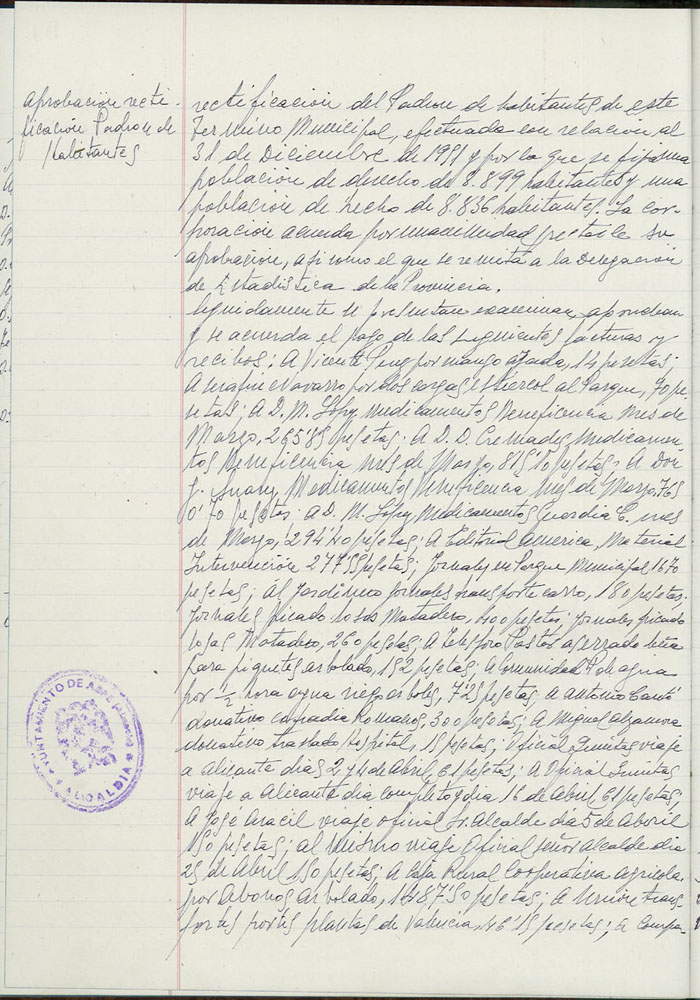 Aprobación recti-
ficación Padrón de
Habitantes
rectificación del Padrón de habitantes de este
Término Municipal, efectuada con relación al
31 de Diciembre de 1951 y por lo que se fija una
población de derecho de 8.899 habitantes y una
población de hecho de 8.836 habitantes. La cor-
poración acuerda por unanimidad prestarle su
aprobación, así como el que se remita a la Delegación
de Estadística de la Provincia.
Seguidamente se presentan examinan aprueban
y se acuerda el pago de las siguientes facturas y
recibos: A Vicente Puig por mango azada, 14 pesetas;
A Serafín Navarro por dos cargas estiercol al Parque, 70 pe
setas; A D. M. López, medicamentos Beneficencia mes de
Marzo, 265'85 pesetas. A D. D. Cremades, medicamen-
tos Beneficencia mes de Marzo, 815'10 pesetas; A Don
J. Juan, Medicamentos Beneficencia mes de Marzo, 765
0'70 pesetas. A D. M. López, medicamentos Guardia C. mes
de Marzo, 294'40 pesetas; A Editorial America, Material
Intervención 277'55 pesetas; Jornales en Parque Municipal 1670
pesetas; Al Jardinero jornales transporte carro, 180 pesetas.
Jornales picado losas Matadero, 400 pesetas; jornales picado
losas Matadero, 260 pesetas; A Telesforo Pastor aserrado leña
para piquetes arbolado, 152 pesetas; A Comunidad de agua
por ½ hora agua riego arboles, 7'25 pesetas. A Antonio Cantó
donativo cofradia Romanos, 300 pesetas; A Miguel Alzamora
donativo traslado Hospital, 15 pesetas; Oficial Quintas viaje
a Alicante dias 2 y 4 de Abril, 61 pesetas; A Oficial Quintas
viaje a Alicante dia completo y dia 16 de Abril, 61 pesetas;
A José Aracil viaje oficial Sr. Alcalde dia 5 de Abril
150 pesetas; al mismo viaje Oficial señor Alcalde dia
25 de Abril 150 pesetas; A Caja Rural Cooperativa Agricola,
por Abonos arbolado, 1487'50 pesetas; A Unión trans-
portes portes plantas de Valencia, 46'15 pesetas; A Compa-
AYUNTAMIENTO DE ASPE (Alicante)
ALCALDIA